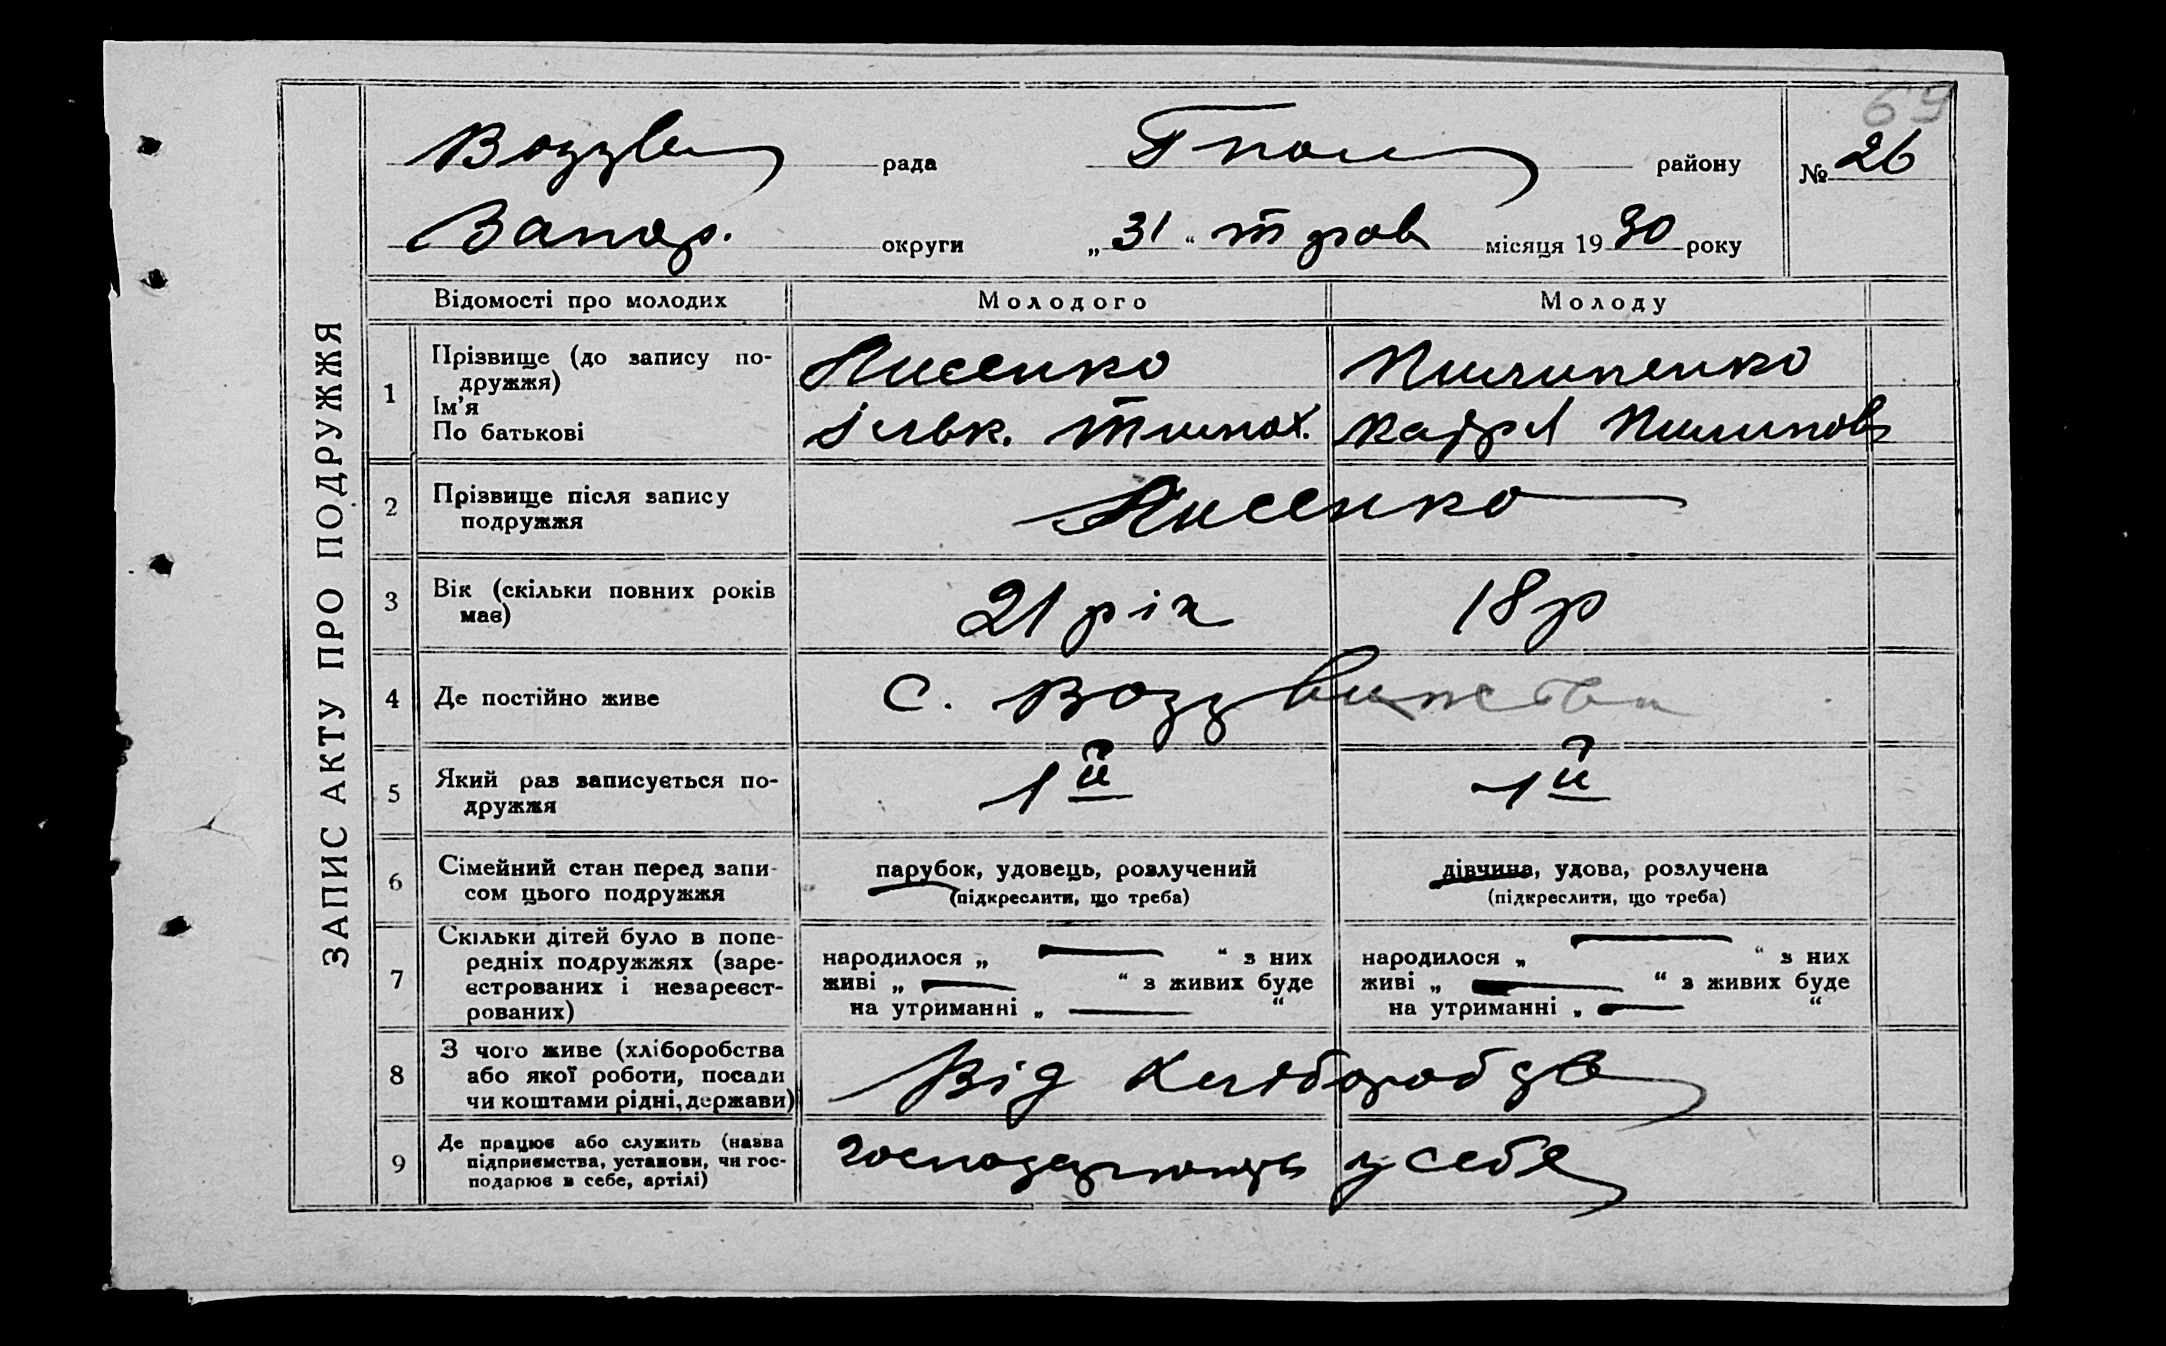 69
Воздв рада Гпол району № 26
Запор. округи „ 31 “ трав місяця 19 30 року
ЗАПИС АКТУ ПРО ПОДРУЖЖЯ
Відомості про молодих Молодого Молоду
1 Прізвище (до запису по-
дружжя)
Лисенко Пилипенко
Ім’я
По батькові
Тимох. Пилипов
2 Прізвище після запису
подружжя
Лисенко
3 Вік (скільки повних років
має)
21 рік 18 р
4 Де постійно живе с. Воздвижівка
5 Який раз записується по-
дружжя
1й 1й
6 Сімейний стан перед запи-
сом цього подружжя
парубок, удовець, розлучений дівчина, удова, розлучена
(підкреслити, що треба) (підкреслити, що треба)
7 Скільки дітей було в попе-
редніх подружжях (заре-
єстрованих і незареєст-
рованих)
народилося „ — “ з них народилося „ — “ з них
живі „ — “ з живих буде живі „ — “ з живих буде
на утриманні „ — “ на утриманні „ — “
8 З чого живе (хліборобства
або якої роботи, посади
чи коштами рідні, держави)
Від
9 Де працює або служить (назва
підприємства, установи, чи гос-
подарює в себе, артілі)
у себе